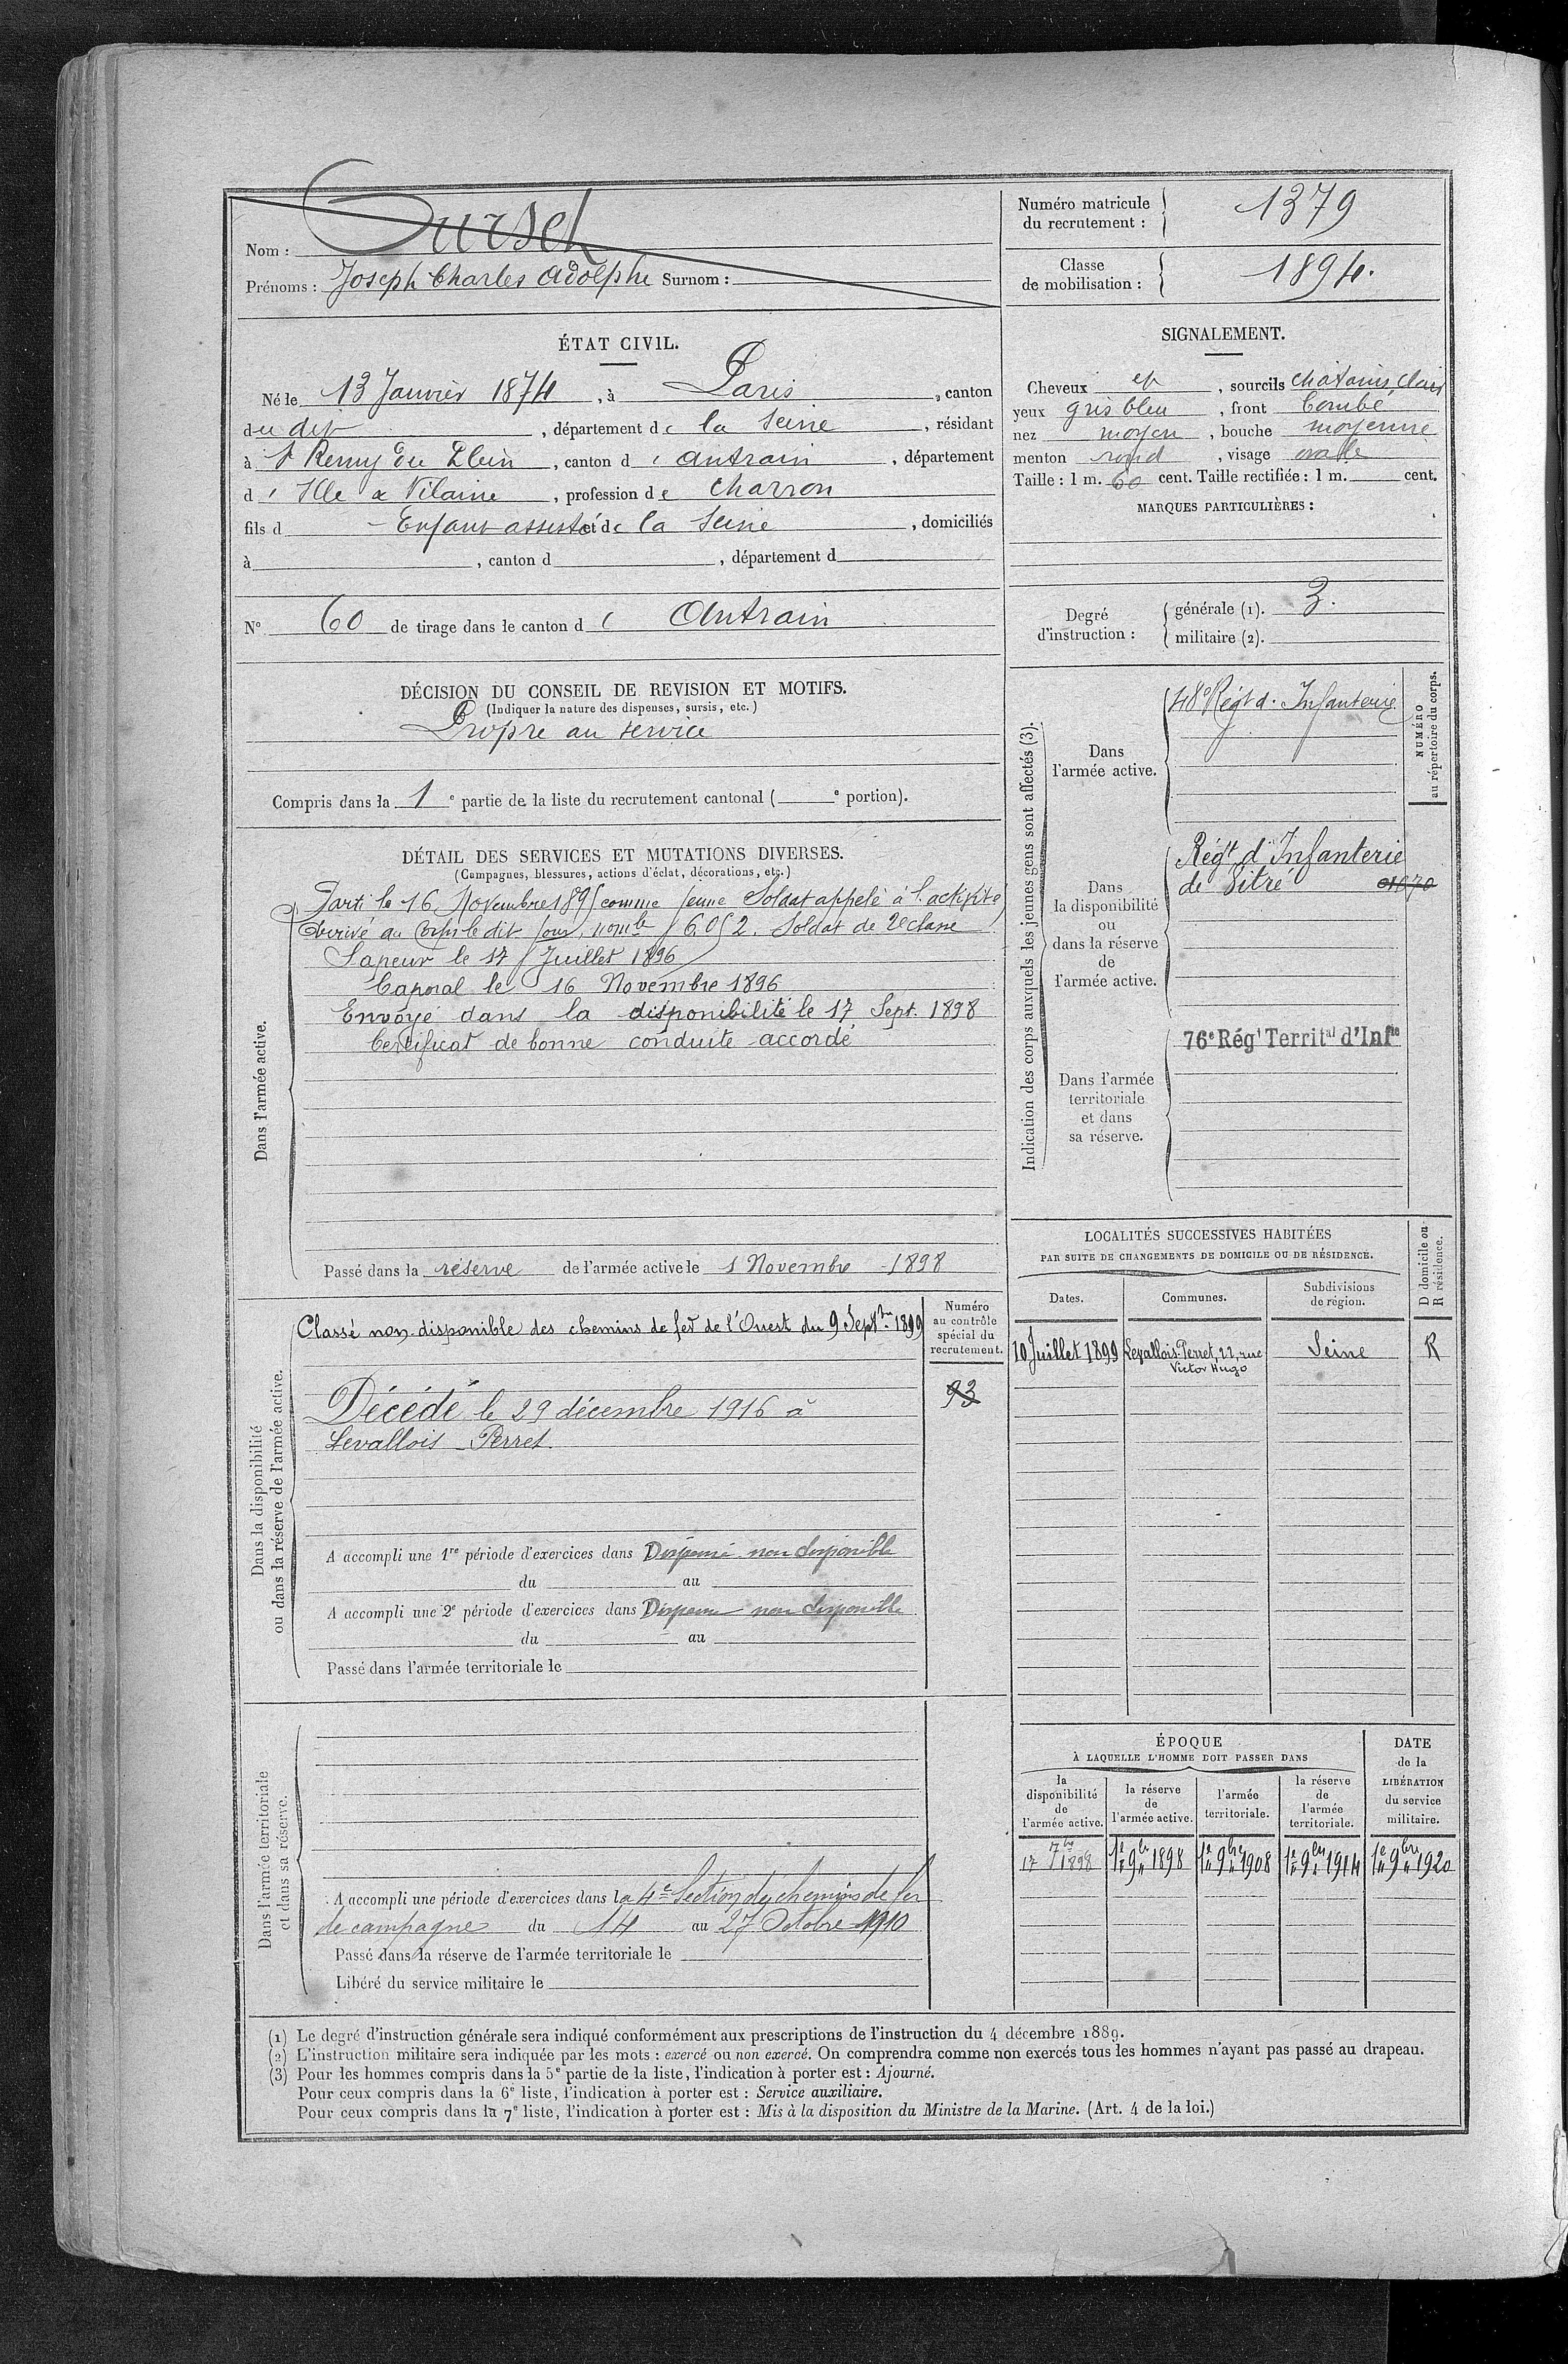 Nom : Oursel
Prénoms : Joseph Charles Adolphe Surnom :
Numéro matricule du recrutement : 1379
Classe de mobilisation : 1894.
ÉTAT CIVIL.
Né le 13 Janvier 1874, à Paris, canton
du dit, département de la Seine, résidant
à St Remy du Plein, canton d' Antrain, département
d' Ille & Vilaine, profession de Charron
fils d Enfant assisté et de la Seine, domiciliés
à , canton d , département d
N° 60 de tirage dans le canton d' Antrain
SIGNALEMENT.
Cheveux et, sourcils chatains clairs
yeux gris bleu, front bombé
nez moyen, bouche moyenne
menton rond, visage ovale
Taille : 1 m. 60 cent. Taille rectifiée : 1 m. cent.
MARQUES PARTICULIÈRES :
Degré d'instruction :
générale (1). 3.
militaire (2).
DÉCISION DU CONSEIL DE REVISION ET MOTIFS.
(Indiquer la nature des dispenses, sursis, etc.)
Propre au service
Compris dans la 1e partie de la liste du recrutement cantonal ( e portion).
DÉTAIL DES SERVICES ET MUTATIONS DIVERSES.
(Campagnes, blessures, actions d'éclat, décorations, etc.)
Dans l'armée active.
Parti le 16 Novembre 1895 comme jeune Soldat appelé à l'activité
Arrivé au Corps le dit jour, nole 6052. Soldat de 2e classe
Sapeur le 17 Juillet 1896
Caporal le 16 Novembre 1896
Envoyé dans la disponibilité le 17 Sept. 1898
Certificat de bonne conduite accordé
Passé dans la réserve de l'armée active le 1 Novembre 1898
Indication des corps auxquels les jeunes gens sont affectés (3).
NUMÉRO au répertoire du corps.
Dans l'armée active.
48e Régt d'Infanterie
Dans la disponibilité ou dans la réserve de l'armée active.
Régt d'Infanterie
de Vitré 01070
Dans l'armée territoriale et dans sa réserve.
76e Régt Territal d'Infie
LOCALITÉS SUCCESSIVES HABITÉES
PAR SUITE DE CHANGEMENTS DE DOMICILE OU DE RÉSIDENCE.
D domicile ou R résidence.
Dates. Communes. Subdivisions de région.
10 Juillet 1899 Levallois-Perret, 22, rue Victor Hugo Seine R
Dans la disponibilité ou dans la réserve de l'armée active.
Numéro au contrôle spécial du recrutement.
93
Classé non disponible des chemins de fer de l'Ouest du 9 Septbre 1899
Décédé le 29 décembre 1916 à
Levallois-Perret.
A accompli une 1re période d'exercices dans Dispensé non disponible
du au
A accompli une 2e période d'exercices dans Dispensé non disponible
du au
Passé dans l'armée territoriale le
Dans l'armée territoriale et dans sa réserve.
A accompli une période d'exercices dans la 4e Section de chemins de fer
de campagne du 14 au 27 Octobre 1910
Passé dans la réserve de l'armée territoriale le
Libéré du service militaire le
ÉPOQUE
À LAQUELLE L'HOMME DOIT PASSER DANS
DATE de la LIBÉRATION du service militaire.
la disponibilité de l'armée active. la réserve de l'armée active. l'armée territoriale. la réserve de l'armée territoriale.
17 7bre 1898 1er 9bre 1898 1er 9bre 1908 1er 9bre 1914 1er 9bre 1920
(1) Le degré d'instruction générale sera indiqué conformément aux prescriptions de l'instruction du 4 décembre 1889.
(2) L'instruction militaire sera indiquée par les mots : exercé ou non exercé. On comprendra comme non exercés tous les hommes n'ayant pas passé au drapeau.
(3) Pour les hommes compris dans la 5e partie de la liste, l'indication à porter est : Ajourné.
Pour ceux compris dans la 6e liste, l'indication à porter est : Service auxiliaire.
Pour ceux compris dans la 7e liste, l'indication à porter est : Mis à la disposition du Ministre de la Marine. (Art. 4 de la loi.)